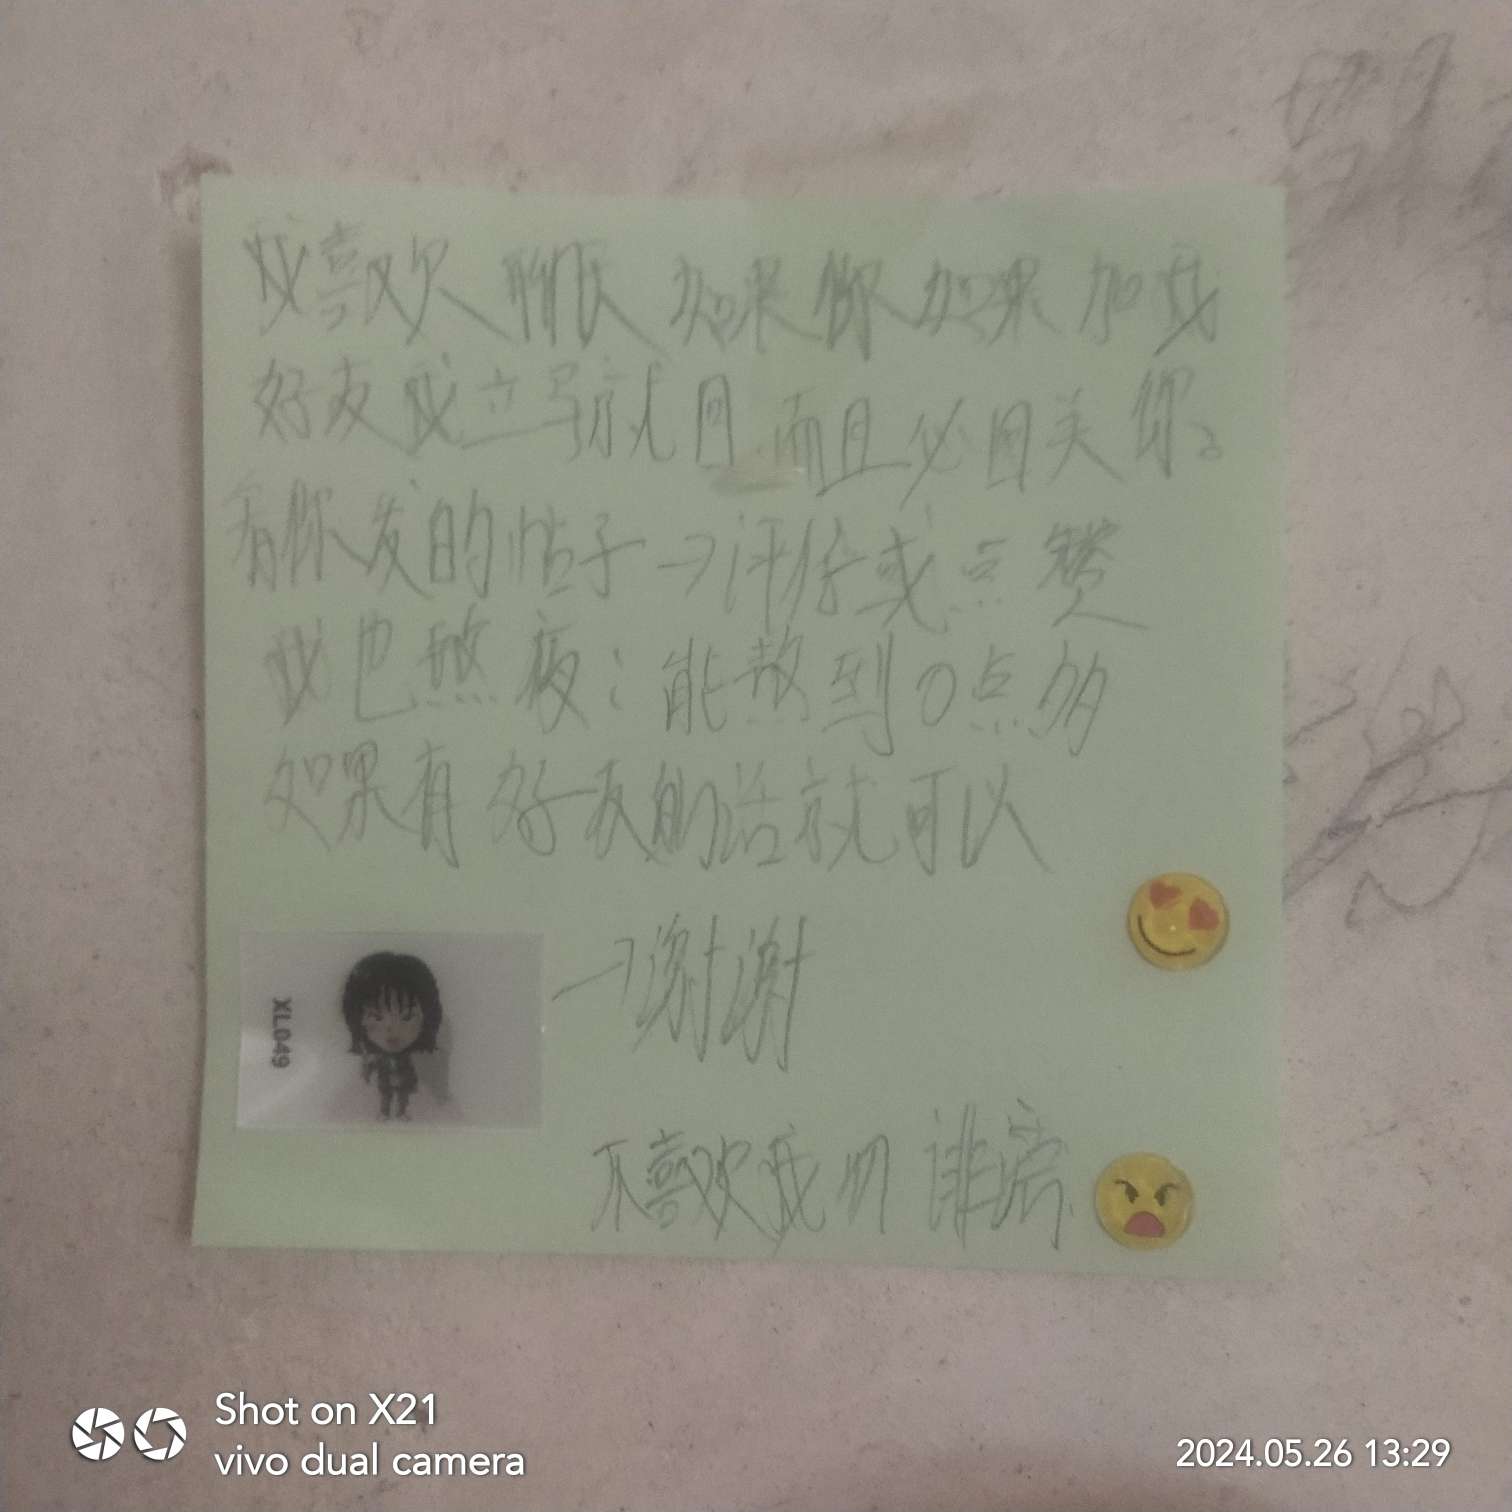 我喜欢聊天 如果你如果加我
好友我立马就回 而且必回关你。
有你发的帖子→评价或点赞
我也熬夜:能熬到0点多
如果有好友的话就可以
→谢谢
XL049
不喜欢我们 诽谤
Shot on X21
vivo dual camera
2024.05.26 13:29